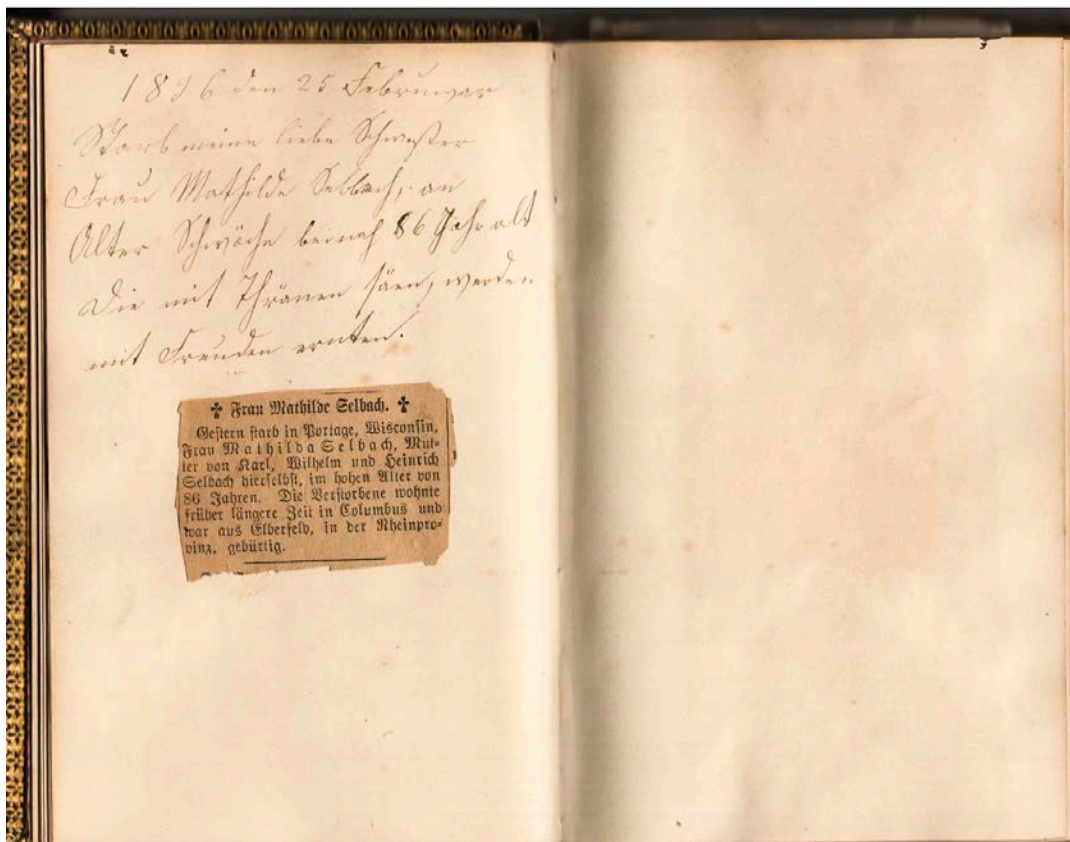 1896 den 25 Februar
Starb meine liebe Schwester
Frau Mathilde Selbach, an
Alter Schwäche beinah 86 Jahr alt
Die mit Thränen säen, werden
mit Freuden ernten.
✝ Frau Mathilde Selbach. ✝
Gestern starb in Portage, Wisconsin,
Frau Mathilda Selbach, Mut-
ter von Karl, Wilhelm und Heinrich
Selbach hierselbst, im hohen Alter von
86 Jahren. Die Verstorbene wohnte
früher längere Zeit in Columbus und
war aus Elberfeld, in der Rheinpro-
vinz, gebürtig.